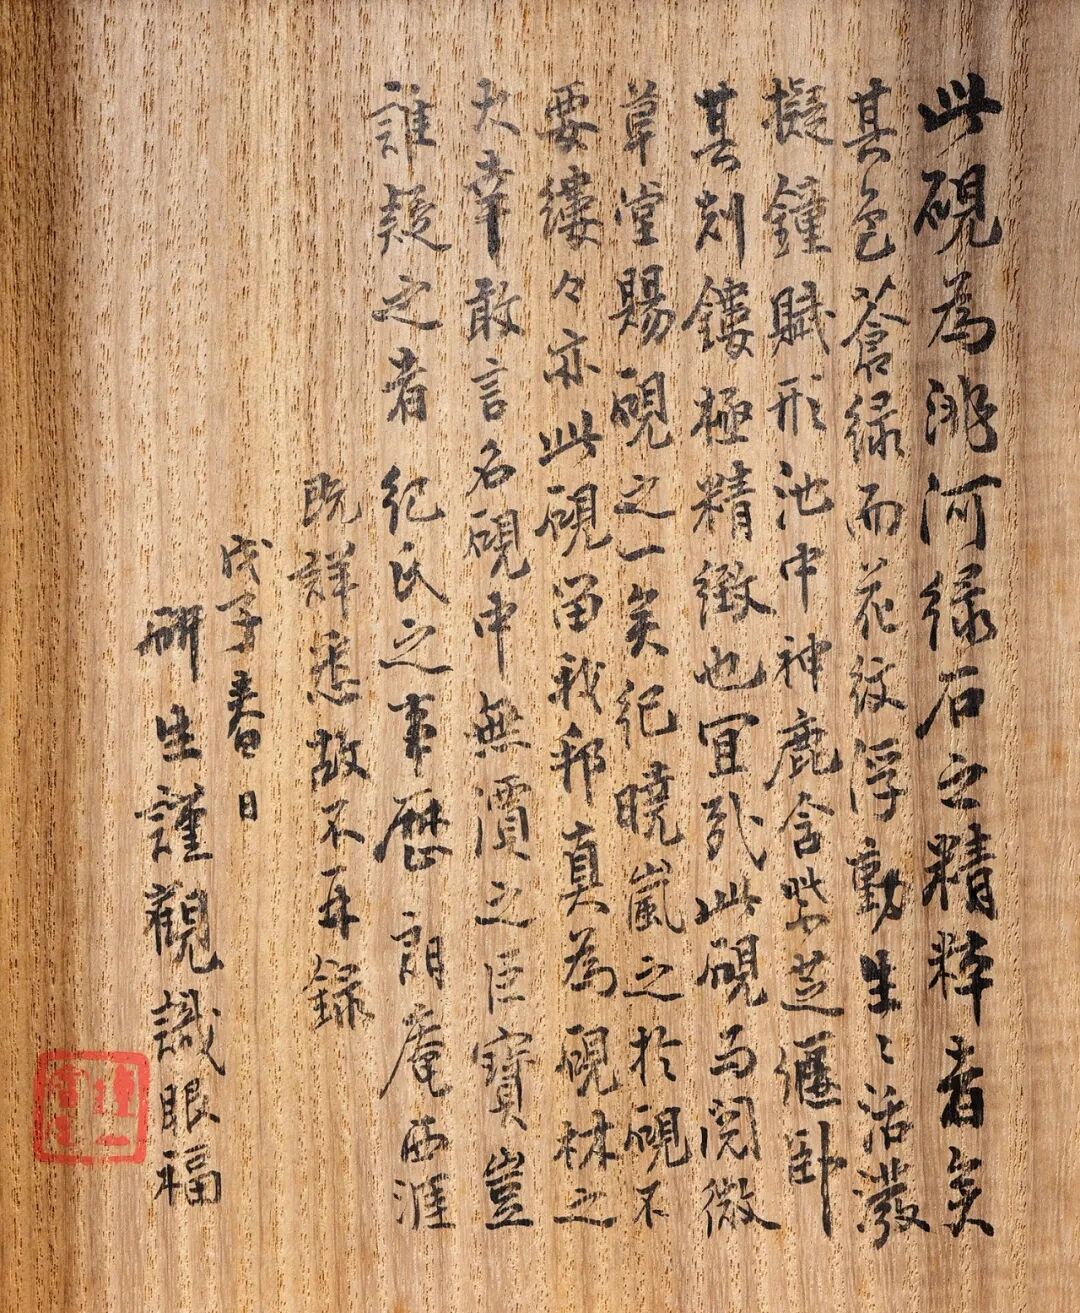 此硯為洮河緑石之精粹者矣
其色蒼緑而花紋浮動生〻活潑
擬鐘賦形池中神鹿含紫芝偃卧
其刻鏤極精緻也宜哉此硯与閲微
草堂賜硯之一矣紀曉嵐之於硯不
要縷々亦此硯留我邦真為硯林之
大幸敢言名硯中無價之臣寶豈
誰疑之者紀氏之事歴朗庵西涯
既詳悉故不再録
戊子春日
研生謹觀識眼福